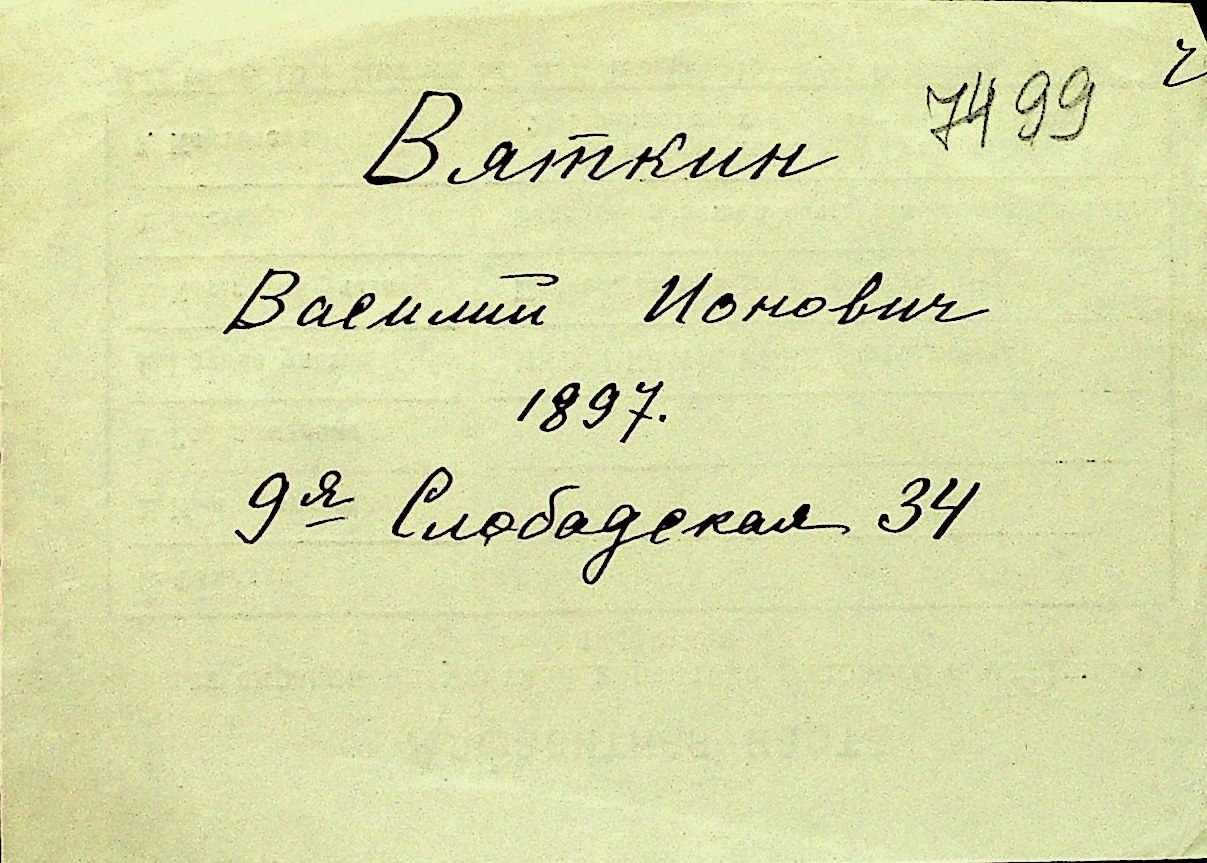 7499
Вяткин
Василий Ионович
1897.
9я Слободская 34